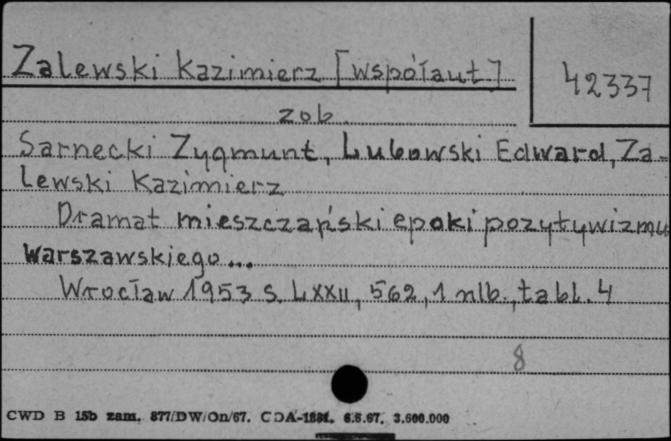 Zalewski Kazimierz [współaut]
42337
zob.
Sarnecki Zygmunt, Lubowski Edward, Za-
lewski Kazimierz
Dramat mieszczański epoki pozytywizmu
Warszawskiego...
Wrocław 1953 s. LXXII, 562, 1 nlb., tabl. 4
8
CWD B 15b zam. 877/DW/On/67. CDA-1881. 6.6.67. 3.600.000